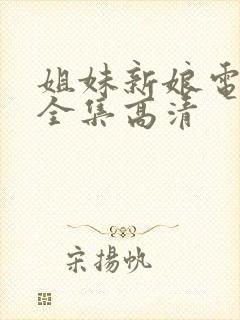 姐妹新娘电
全集高清
宋揚帆